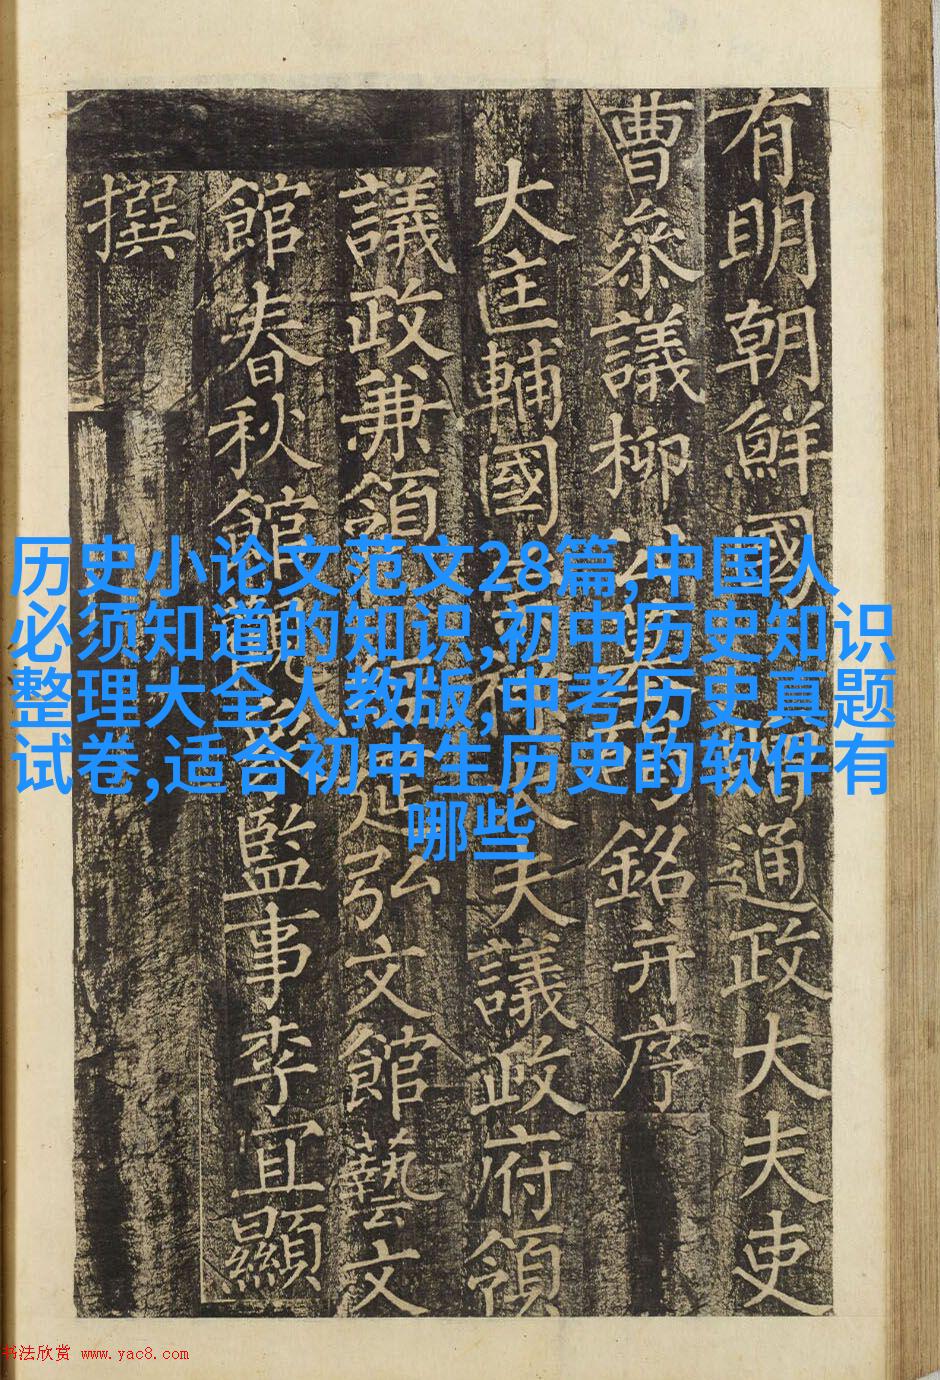 有明朝鮮國通政大夫吏
曹叅議柳公墓銘并序
大匡輔國崇祿大夫議政府領
議政兼領經筵弘文館藝文
館春秋館觀象監事李宜顯
撰
历史小论文范文28篇,中国人
必须知道的知识,初中历史知识
整理大全人教版,中考历史真题
试卷,适合初中生历史的软件有
哪些
书法欣赏 www.yac8.com